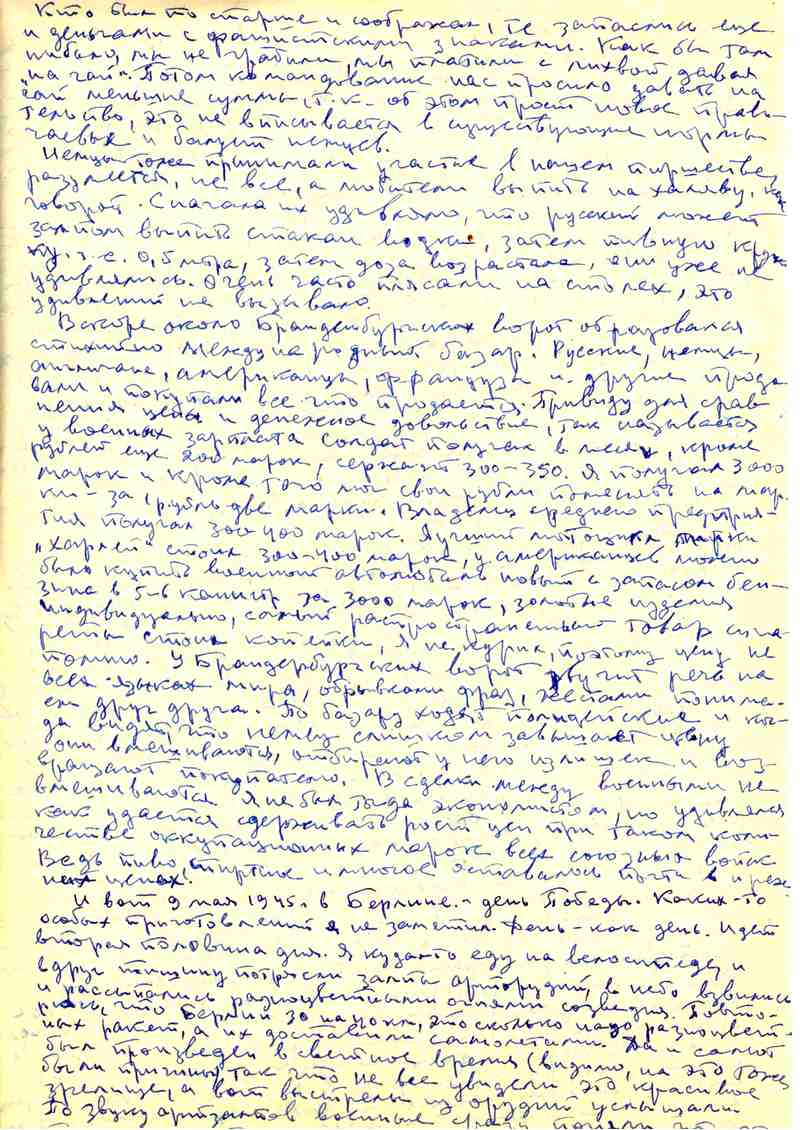 Кто был по старше и соображал, те запаслись еще
и деньгами с фашистскими знаками. Как бы там
нибыло, мы не грабили, мы платили с лихвой давая
"на чай". Потом командование нас просило давать на
чай меньшие суммы, т.к. об этом просит новое прави-
тельство, это не вписывается в существующие нормы
чаевых и балует немцев.
Немцы тоже принимали участие в нашем пиршестве,
разумеется, не все, а любители выпить на халяву, как
говорят. Сначала их удивляло, что русский может
залпом выпить стакан водки, затем пивную круж
ку, т.е. 0,5 литра, затем доза возрастала, они уже не
удивлялись. Очень часто плясали на столах, это
удивлений не вызывало.
Вскоре около Бранденбургских ворот образовался
стихийно международный базар. Русские, немцы,
англичане, американцы, французы и другие прода
вали и покупали все что продается. Привиду для срав
нения цены и денежное довольствие, так называется
у военных зарплата солдат получал в месяц, кроме
рублей еще 200 марок, сержант 300-350. Я получал 3000
марок и кроме того мог свои рубли поменять на мар
ки - за 1 рубль две марки. Владелец среднего предприя-
тия получал 300-400 марок. Лучший мотоцикл марки
"Харлей" стоил 300-400 марок, у американцев можно
было купить военный автомобиль новый с запасом бен-
зина в 5-6 канистр за 3000 марок, золотые изделия
индивидуально, самый распространенный товар сига
реты стоил копейки, я не курил, поэтому цену не
помню. У Брандербургских ворот звучит речь на
всех языках мира, обрывками фраз, жестами понима-
ем друг друга. По базару ходят полицейские и ког-
да видят, что немец слишком завышает цену
они вмешиваются, отбирают у него излишек и воз-
вращают покупателю. В сделки между военными не
вмешиваются. Я не был тогда экономистом, но удивлялся
как удается сдерживать рост цен при таком коли-
честве оккупационных марок всех союзных войск
Ведь пиво, спиртное и многое оставалось почти в преж
них ценах.
И вот 9 мая 1945 г. в Берлине - день Победы. Каких-то
особых приготовлений я не заметил. День - как день. Идет
вторая половина дня. Я куда-то еду на велосипеде, и
вдруг тишину потрясли залпы арторудий, в небо взвились
и рассыпались разноцветными огнями созвездия. Повто-
рюсь, что Берлин 30 на 40 км, это сколько надо разноцвет-
ных ракет, а их доставили самолетами. Да и салют
был произведен в светлое время (видимо, на это тоже
были причины) так что не все увидели это красивое
зрелище, а вот выстрелы из орудий услышали
По звуку артзалпов военные сразу поняли что